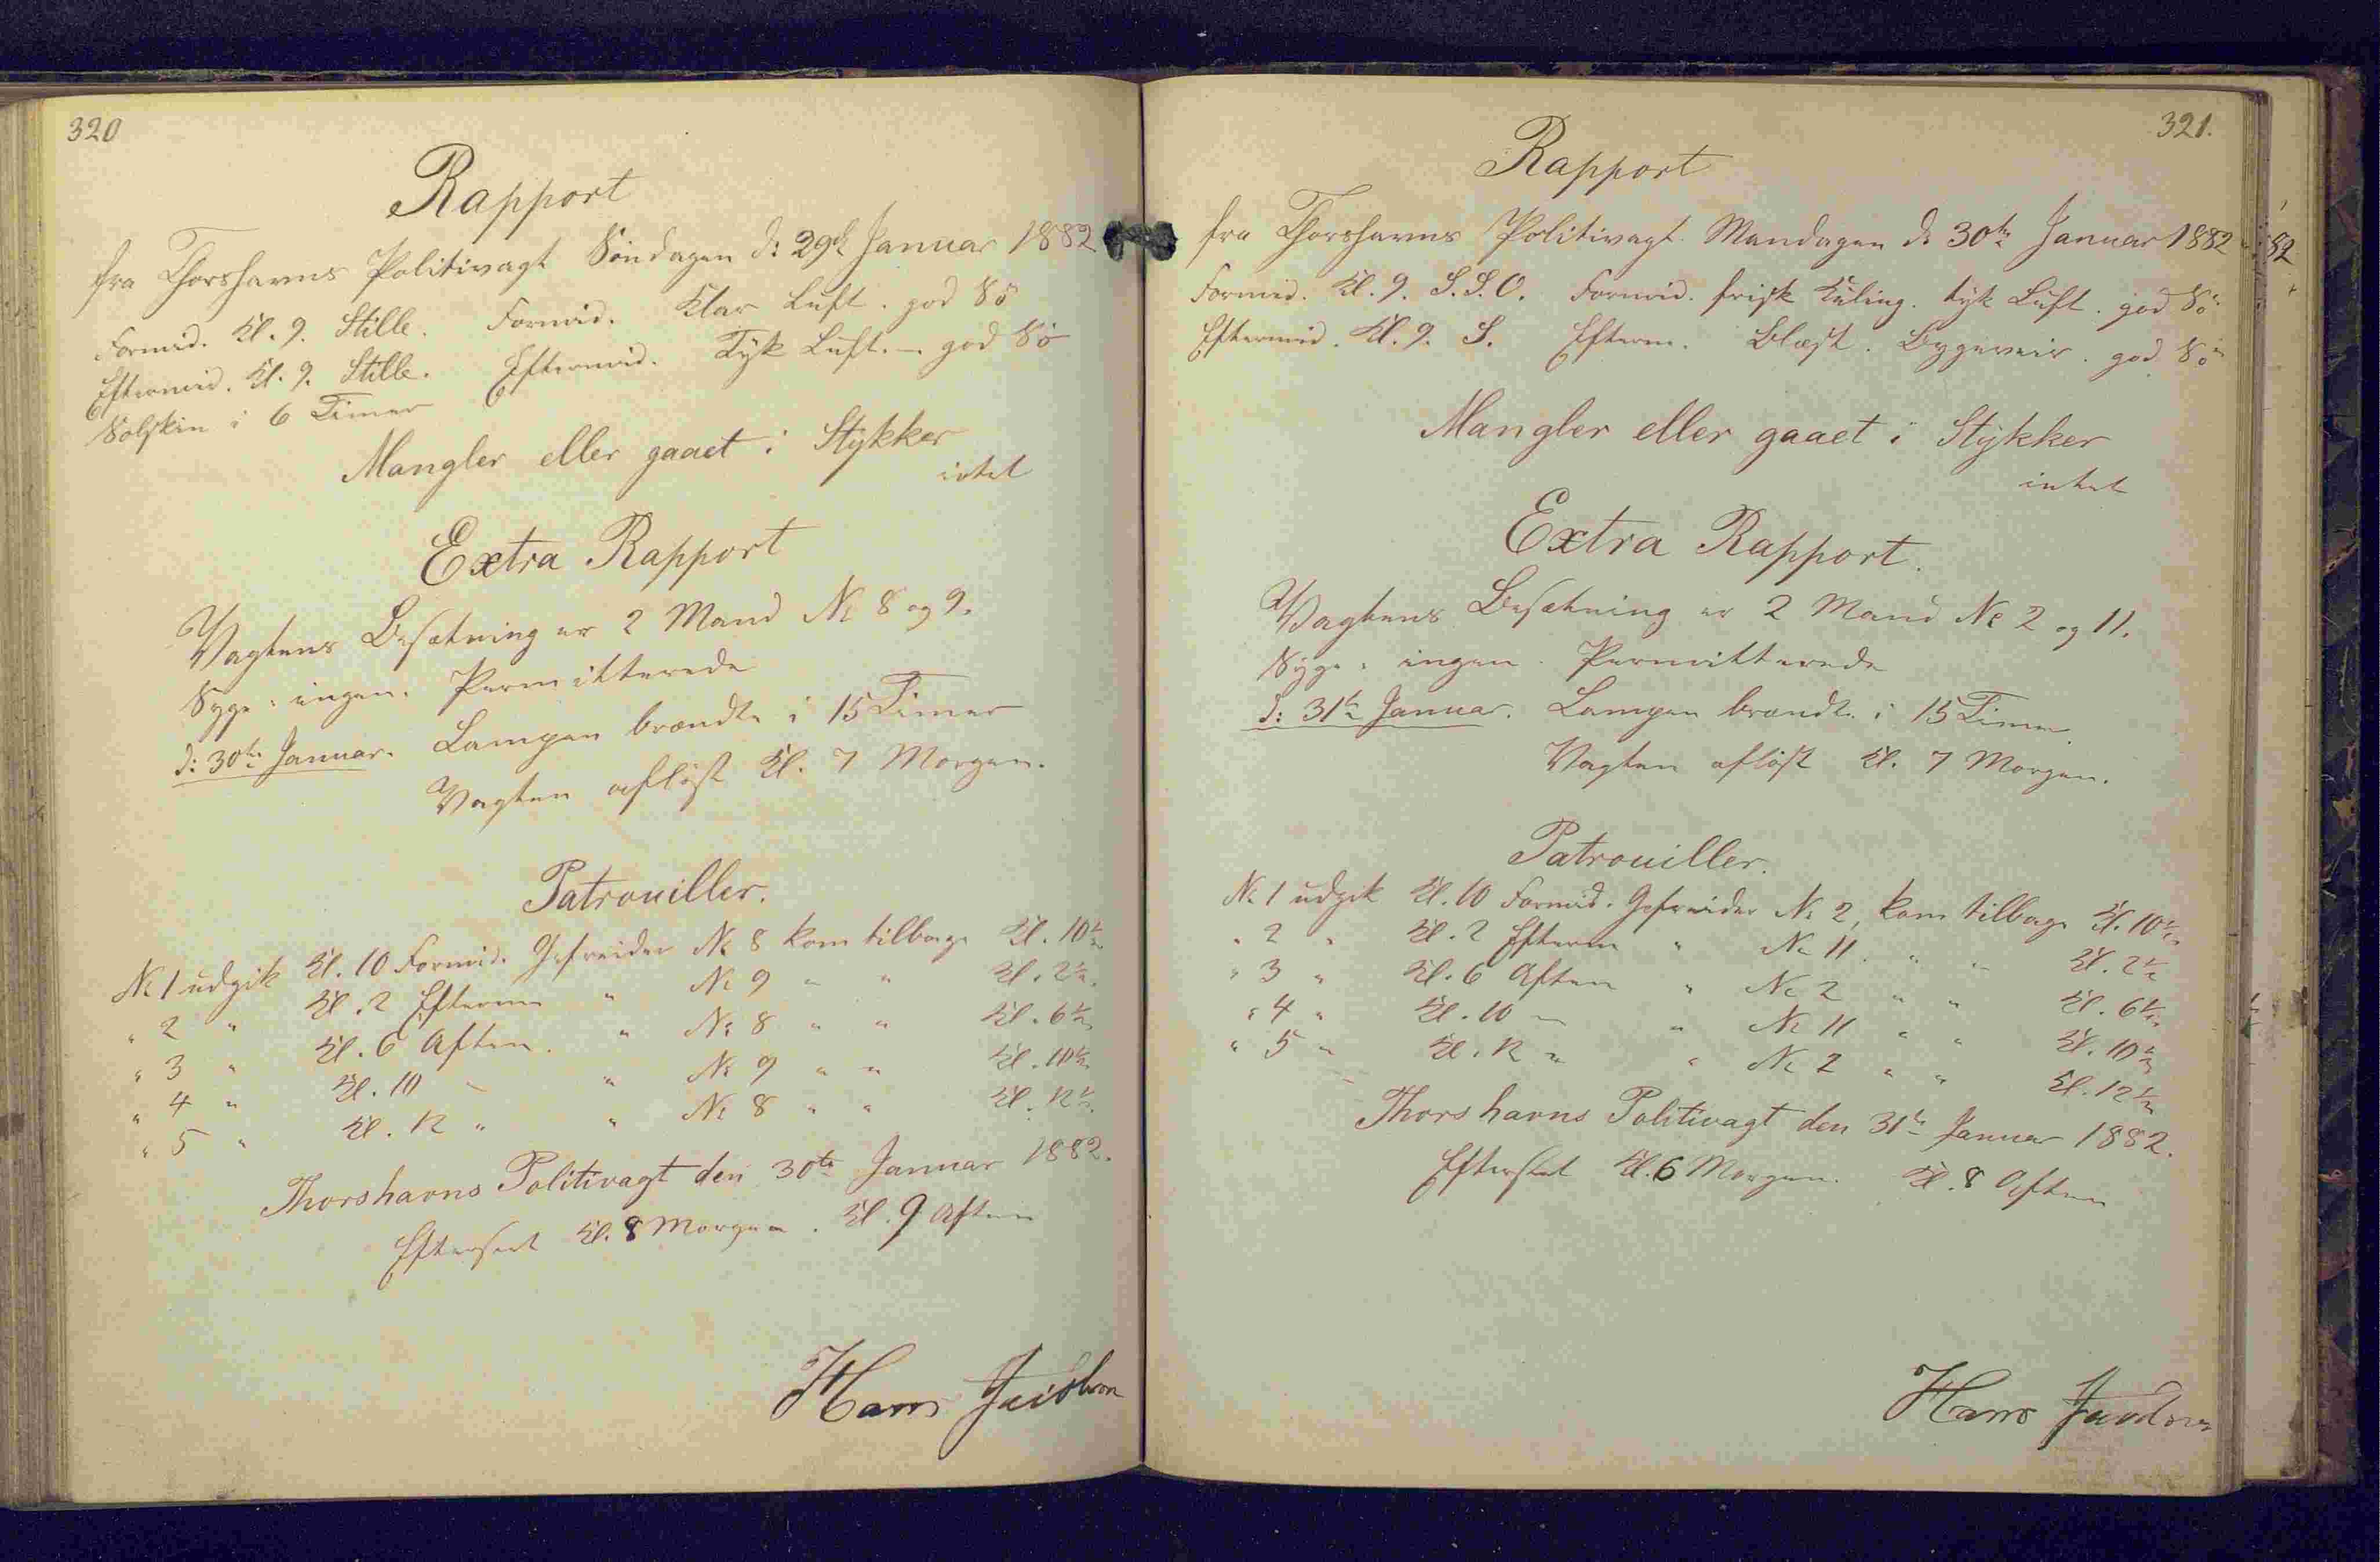 320
Rapport
fra Thorshavns Politivagt Søndagen d: 29de Januar 1882
Formid. Kl. 9. Stille. Formid. Klar Luft. god Sö
Eftermid. Kl. 9. Stille. Eftermid. Tyk Luft. — god Sö
Solskin i 6 Timer
Mangler eller gaaet i Stykker
intet
Extra Rapport
Vagtens Besætning er 2 Mand No 8 og 9.
Syge: ingen. Permitterede
d: 30te Januar. Lampen brændte i 15 Timer
Vagten aflöst Kl. 7 Morgen.
Patrouiller.
No 1 udgik Kl. 10 Formid. Gefreider No 8 kom tilbage Kl. 10½
" 2 " Kl. 2 Efterm " No 9 " " Kl. 2½.
" 3 " Kl. 6 Aften. " No 8 " " Kl. 6½
" 4 " Kl. 10 — " No 9 " " Kl. 10½
" 5 " Kl. 12 " " No 8 " " Kl. 12½.
Thorshavns Politivagt den 30te Januar 1882.
Efterseet Kl. 8 Morgen. Kl. 9 Aften
Hans
321.
Rapport
fra Thorshavns Politivagt. Mandagen d: 30te Januar 1882
Formid. Kl. 9. S.S.O. Formid. frisk Kuling. tyk Luft. god Sö
Eftermid. Kl. 9. S. Efterm. Blæst. Bygeveir. god Sö
Mangler eller gaaet i Stykker
intet
Extra Rapport.
Vagtens Besætning er 2 Mand No 2 og 11.
Syge: ingen. Permitterede
d: 31te Januar. Lampen brændte i 15 Timer.
Vagten aflöst Kl. 7 Morgen.
Patrouiller.
No 1 udgik Kl. 10 Formid. Gefreider No 2, kom tilbage Kl. 10½
" 2 " Kl. 2 Efterm " No 11. " " Kl. 2½
" 3 " Kl. 6 Aften " No 2 " " Kl. 6½
" 4 " Kl. 10 — " No 11 " " Kl. 10½
" 5 " Kl. 12 " " No 2 " " Kl. 12½
Thorshavns Politivagt den 31te Januar 1882.
Efterseet Kl. 6 Morgen. Kl. 8 Aften
Hans
82